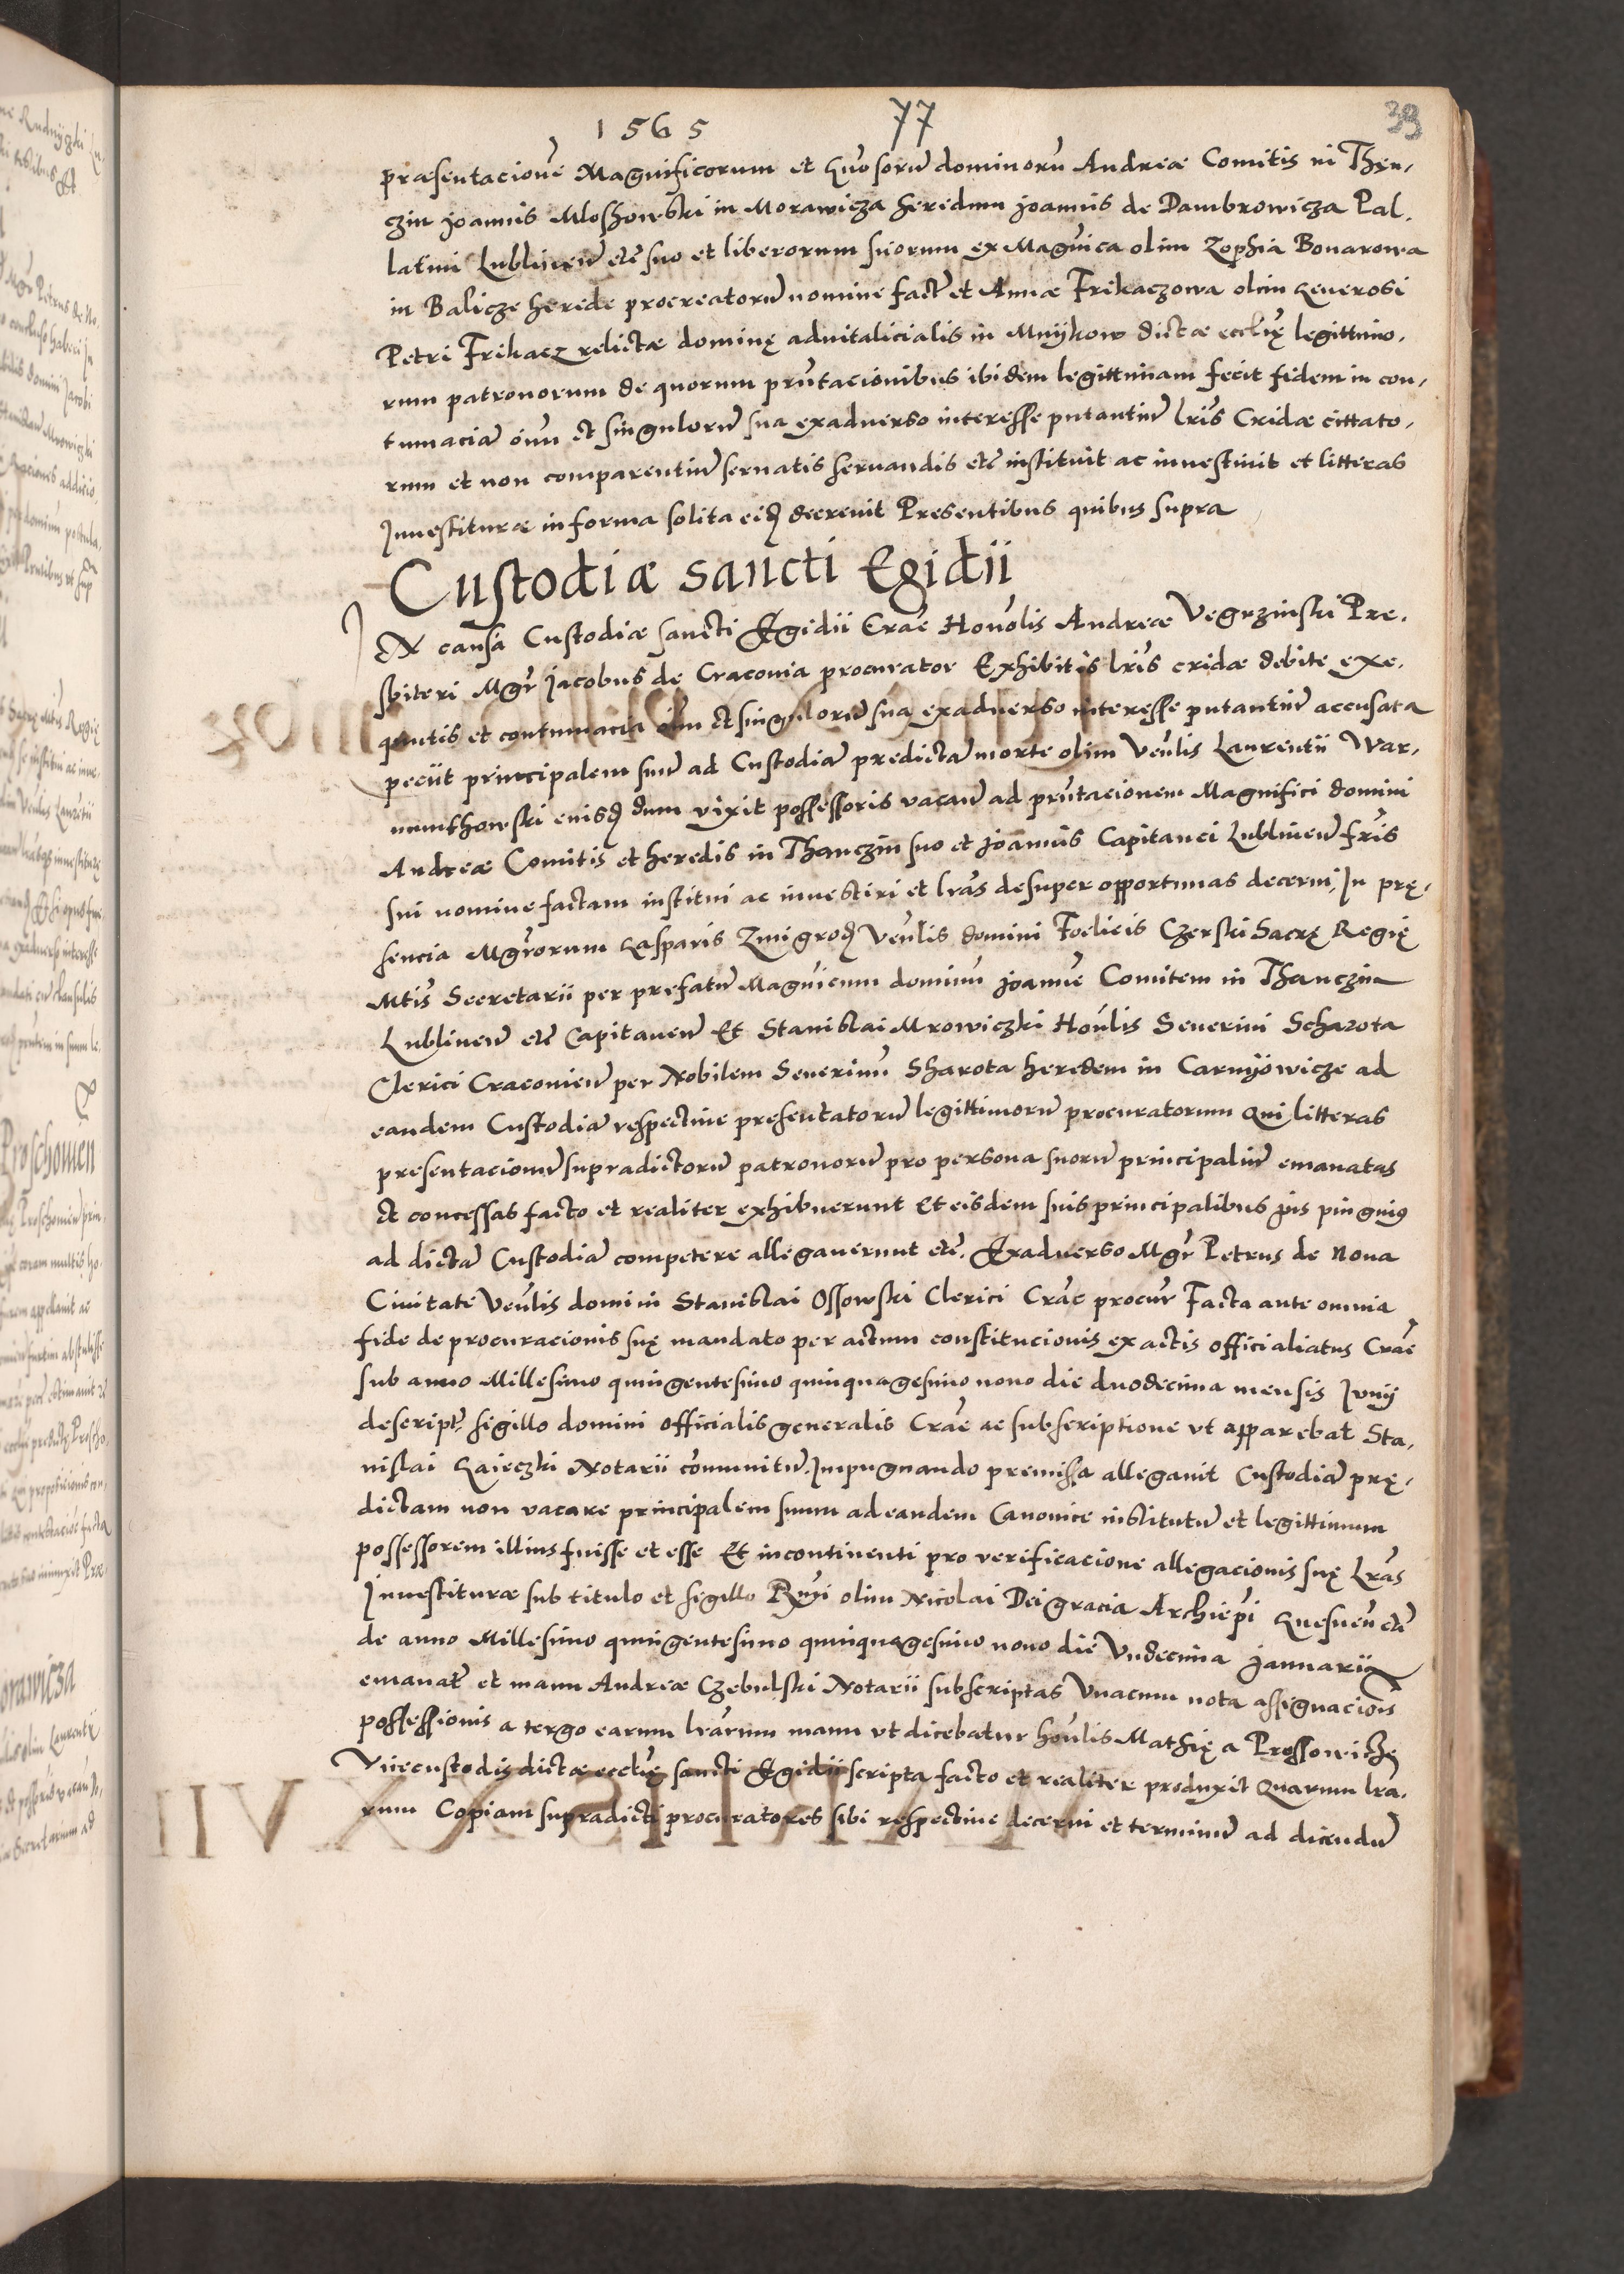 1565 77 39
præsentacionē Magnificorum et Gn̄osorū dominorū Andreæ Comitis in Thęn,
czin Joannis Mloshowski in Morawicza heredum Joannis de Dambrowicza Pal,
latini Lublinen̄ etc̄ suo et liberorum suorum ex Magn̄ica olim Zophia Bonarowa
in Balicze herede procreatorū nomine fact̄ et Annæ Frikaczowa olim Generosi
Petri Frikacz relictæ dominę aduitalicialis in Mnijkow dictæ eccl̄ię legittimo,
rum patronorum de quorum pr̄ntacionibus ibidem legittimam fecit fidem in con,
tumaciā om̄n et singulorū sua exaduerso interesse putantiū lr̄is Cridæ cittato,
rum et non comparentiū seruatis seruandis etc̄ instituit ac inuestiuit et litteras
Inuestituræ in forma solita eid decreuit Presentibus quibus supra
Custodiæ sancti Egidii
Ex causa Custodiæ sancti Egidii Crac̄ Hono̅lis Andreæ Vegrzinski Pre,
sbiteri Mgr̄ Jacobus de Craconia procurator Exhibitis lr̄is cridæ debite exe,
quutis et contumacia om̄n et singulorū sua exaduerso interesse putantiū accusata
peciit principalem suū ad Custodiā predictā morte olim Ven̄lis Laurentii War,
munthowski euisd dum vixit possessoris vacan̄ ad prn̄tacionem Magnifici domini
Andreæ Comitis et heredis in Thanczin suo et Joannis Capitanei Lublinen̄ fr̄is
sui nomine factam institui ac inuestiri et lr̄as desuper opportunas decerni, In prę,
sencia Mgr̄orum Gasparis Zmigrod Ven̄lis domini Foelicis Czerski Sacrę Regię
Mtis̄ Secretarii per prefatū Magn̄icum dominū Joannē Comitem in Thanczin
Lublinen̄ etc̄ Capitaneū Et Stanislai Mrowiczki Hon̄lis Seuerini Scharota
Clerici Cracouien̄ per Nobilem Seuerinū Sharota heredem in Carnijowicze ad
eandem Custodiā respectiue presentatorū legittimorū procuratorum Qui litteras
presentacionū supradictorū patronorū pro persona suorū principaliū emanatas
et concessas facto et realiter exhibuerunt Et eisdem suis principalibus jus pinguius
ad dictā Custodiā competere allegauerunt etc̄. Exaduerso Mgr̄ Petrus de Noua
Ciuitate Ven̄lis domini Stanislai Ossowski Clerici Crac̄ procur̄ Facta ante omnia
fide de procuracionis suę mandato per actum constitucionis ex actis officialiatus Crac̄
sub anno Millesimo quingentesimo quinquagesimo nono die duodecima mensis Junij
descript̄ sigillo domini officialis generalis Crac̄ ac subscriptione vt apparebat Sta,
nislai Gaieczki Notarii com̄unitū. Impugnando premissa allegauit Custodiā prę,
dictam non vacare principalem suum ad eandem Canonice institutū et legittimum
possessorem illius fuisse et esse Et incontinenti pro verificacione allegacionis suę Lr̄as
Inuestituræ sub titulo et sigillo Rm̄i olim Nicolai Dei gracia Archiep̄i Gnesnen̄ etc̄
de anno Millesimo quingentesimo quinquagesimo nono die Vndecima Januarij
emanat̄ et manu Andreæ Czebulski Notarii subscriptas Vnacum nota assignacionis
possessionis a tergo earum lr̄arum manu vt dicebatur hon̄lis Mathię a Prossowicze
Vicecustodis dictæ eccl̄ię sancti Egidii scripta facto et realiter produxit Quarum lr̄a,
rum Copiam supradicti procuratores sibi respectiue decerni et terminū ad dicendū